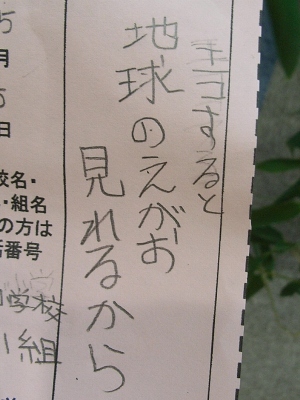 エコすると
地球のえがお
見れるから
5
月
5
日
校名・
・組名
の方は
番号
学校
組